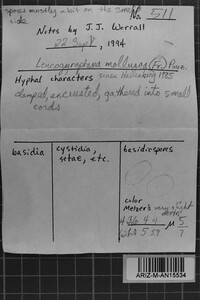 spores mostly a bit on the small side
No. 511
Notes by J.J. Worrall
22 Sept, 1994
Leucogyrophana mollusca (Fr.) Pouz.
Hyphal characters sensu Hallenberg 1985
clamped, encrusted, gathered into small
cords
basidia
cystidia,
setae, etc.
basidiospores
color
Melzer's very slight
dextr.
ARIZ-M-AN15534